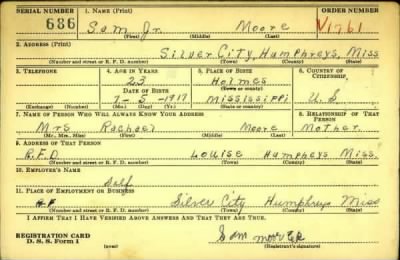 SERIAL NUMBER 1. NAME (Print) ORDER NUMBER
686 Sam Jr. Moore V1761
(First) (Middle) (Last)
2. ADDRESS (Print)
Silver City, Humphreys, Miss
(Number and street or R. F. D. number) (Town) (County) (State)
3. TELEPHONE 4. AGE IN YEARS 5. PLACE OF BIRTH 6. COUNTRY OF CITIZENSHIP
23 Holmes
DATE OF BIRTH (Town or county)
7-5-1917 Mississippi U.S.
(Exchange) (Number) (Mo.) (Day) (Yr.) (State or country)
7. NAME OF PERSON WHO WILL ALWAYS KNOW YOUR ADDRESS 8. RELATIONSHIP OF THAT PERSON
Mrs Rachael Moore Mother
(Mr., Mrs., Miss) (First) (Middle) (Last)
9. ADDRESS OF THAT PERSON
R.F.D. Louise Humpheys Miss.
(Number and street or R. F. D. number) (Town) (County) (State)
10. EMPLOYER'S NAME
Self
11. PLACE OF EMPLOYMENT OR BUSINESS
Silver City Humphreys Miss
(Number and street or R. F. D. number) (Town) (County) (State)
I AFFIRM THAT I HAVE VERIFIED ABOVE ANSWERS AND THAT THEY ARE TRUE.
REGISTRATION CARD
D. S. S. Form 1 (over) Sam moore JR
(Registrant's signature)